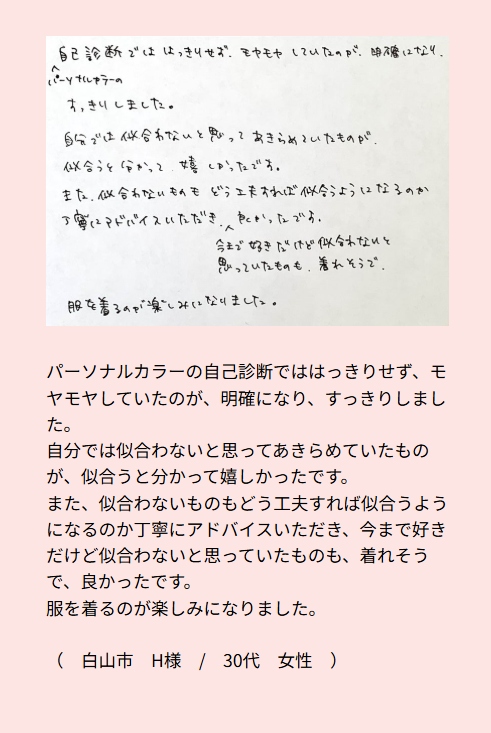 自己診断でははっきりせず、モヤモヤしていたのが、明確になり、
パーソナルカラーの
すっきりしました。
自分では似合わないと思ってあきらめていたものが、
似合うと分かって、嬉しかったです。
また、似合わないものもどう工夫すれば似合うようになるのか
丁寧にアドバイスいただき、良かったです。
今まで好きだけど似合わないと
思っていたものも、着れそうで、
服を着るのが楽しみになりました。
パーソナルカラーの自己診断でははっきりせず、モ
ヤモヤしていたのが、明確になり、すっきりしまし
た。
自分では似合わないと思ってあきらめていたもの
が、似合うと分かって嬉しかったです。
また、似合わないものもどう工夫すれば似合うよう
になるのか丁寧にアドバイスいただき、今まで好き
だけど似合わないと思っていたものも、着れそう
で、良かったです。
服を着るのが楽しみになりました。
（　白山市　H様　/　30代　女性　）